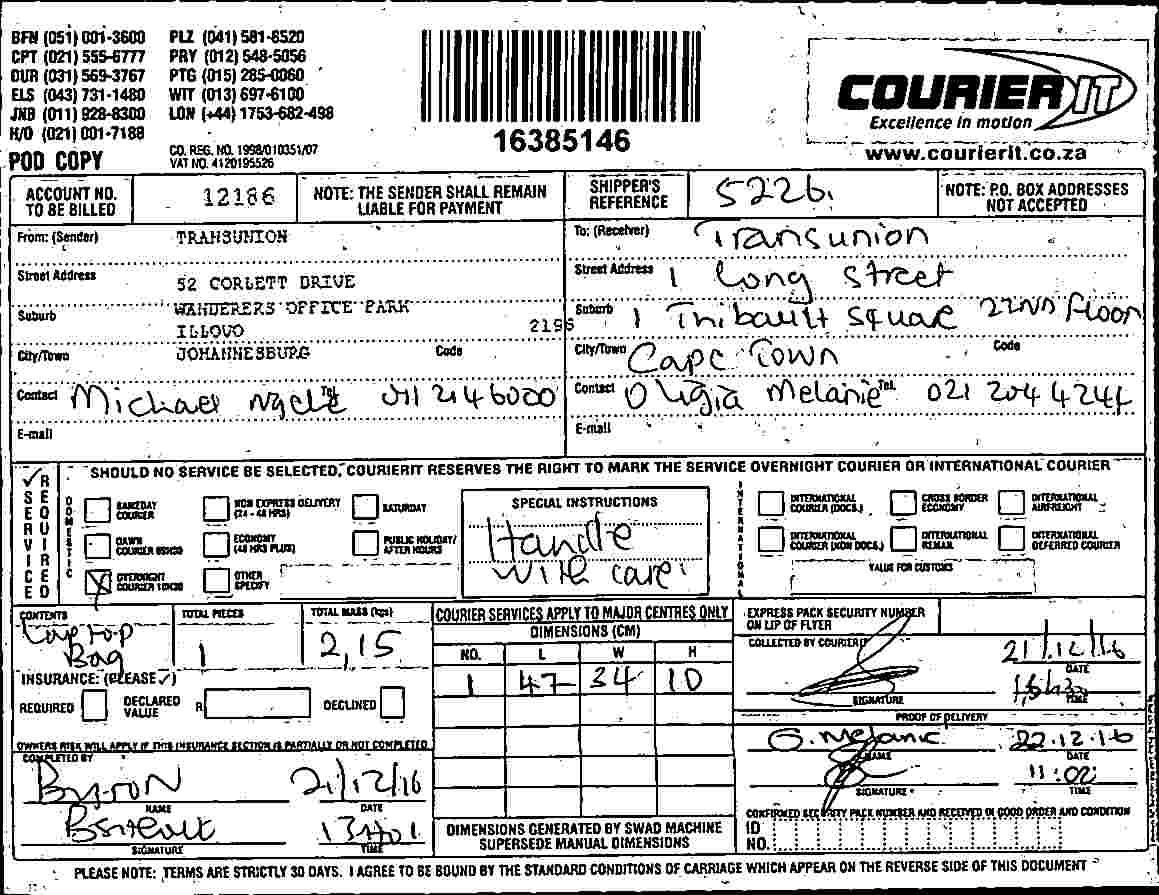 BFN (051) 001-3600 PLZ (041) 581-8520
CPT (021) 555-6777 PRY (012) 548-5056
DUR (031) 569-3767 PTG (015) 285-0060
ELS (043) 731-1480 WIT (013) 697-6100
JNB (011) 928-8300 LON (+44) 1753-682-498
H/O (021) 001-7188
POD COPY
CO. REG. NO. 1998/010351/07
VAT NO. 4120195526
16385146
COURIER IT
Excellence in motion
www.courierit.co.za
ACCOUNT NO. TO BE BILLED 12186
NOTE: THE SENDER SHALL REMAIN LIABLE FOR PAYMENT
SHIPPER'S REFERENCE 5226.
NOTE: P.O. BOX ADDRESSES NOT ACCEPTED
From: (Sender) TRANSUNION
Street Address 52 CORLETT DRIVE
Suburb WANDERERS OFFICE PARK
ILLOVO 2196
City/Town JOHANNESBURG Code
Contact Michael Tel. 011 2146000
E-mail
To: (Receiver) Transunion
Street Address 1 Long Street
Suburb 1 Thibault Square 22nd Floor
City/Town Cape Town Code
Contact Melanie Tel. 021 204 4244
E-mail
SERVICE REQUIRED
SHOULD NO SERVICE BE SELECTED, COURIERIT RESERVES THE RIGHT TO MARK THE SERVICE OVERNIGHT COURIER OR INTERNATIONAL COURIER
DOMESTIC
SAMEDAY COURIER
NON EXPRESS DELIVERY (24 - 48 HRS)
SATURDAY
DAWN COURIER
ECONOMY (48 HRS PLUS)
PUBLIC HOLIDAY/ AFTER HOURS
OVERNIGHT COURIER
OTHER SPECIFY
SPECIAL INSTRUCTIONS
Handle
with care
INTERNATIONAL
INTERNATIONAL COURIER (DOCS.)
CROSS BORDER ECONOMY
INTERNATIONAL AIRFREIGHT
INTERNATIONAL COURIER (NON DOCS.)
INTERNATIONAL REMAIL
INTERNATIONAL DEFERRED COURIER
VALUE FOR CUSTOMS
CONTENTS
Laptop
Bag
TOTAL PIECES
1
TOTAL MASS (kgs)
2,15
INSURANCE: (PLEASE ✓)
REQUIRED DECLARED VALUE R DECLINED
OWNERS RISK WILL APPLY IF THIS INSURANCE SECTION IS PARTIALLY OR NOT COMPLETED
COMPLETED BY
Byron 21/12/16
NAME DATE
13h01
SIGNATURE TIME
COURIER SERVICES APPLY TO MAJOR CENTRES ONLY
DIMENSIONS (CM)
NO. L W H
1 47 34 10
DIMENSIONS GENERATED BY SWAD MACHINE SUPERSEDE MANUAL DIMENSIONS
EXPRESS PACK SECURITY NUMBER ON LIP OF FLYER
COLLECTED BY COURIERIT
21/12/16
DATE
SIGNATURE TIME
PROOF OF DELIVERY
O. Melanie 22.12.16
NAME DATE
11:02
SIGNATURE TIME
CONFIRMED SECURITY PACK NUMBER AND RECEIVED IN GOOD ORDER AND CONDITION
ID NO.
PLEASE NOTE: TERMS ARE STRICTLY 30 DAYS. I AGREE TO BE BOUND BY THE STANDARD CONDITIONS OF CARRIAGE WHICH APPEAR ON THE REVERSE SIDE OF THIS DOCUMENT